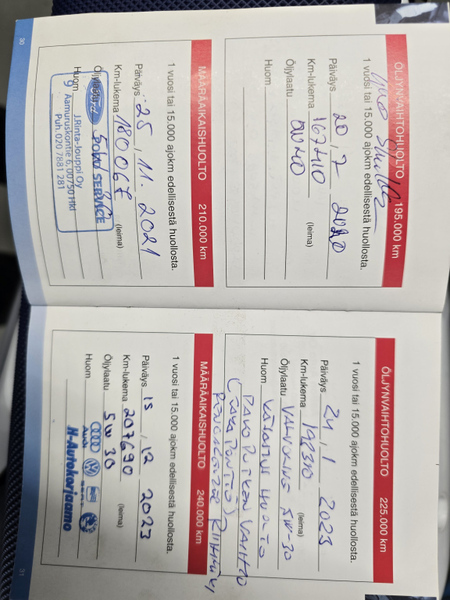 ÖLJYNVAIHTOHUOLTO 195.000 km
1 vuosi tai 15.000 ajokm edellisestä huollosta.
Päiväys 20 / 7 2020
Km-lukema 167410
(leima)
Öljylaatu 0W40
Huom
MÄÄRÄAIKAISHUOLTO 210.000 km
1 vuosi tai 15.000 ajokm edellisestä huollosta.
Päiväys 25 / 11. 2021
Km-lukema 180067
(leima)
Öljylaatu
SERVICE
Huom
J.Rinta-Jouppi Oy
9 Aamuruskontie 6, 00750 Hki
Puh. 020 7681 281
90
ÖLJYNVAIHTOHUOLTO 225.000 km
1 vuosi tai 15.000 ajokm edellisestä huollosta.
Päiväys 24 / 1 2023
Km-lukema
(leima)
Öljylaatu VALVOLINE 5W-30
Huom HUOLTO
PAKOPUTKEN VAIHTO
MÄÄRÄAIKAISHUOLTO 240.000 km
1 vuosi tai 15.000 ajokm edellisestä huollosta.
Päiväys 15 / 12 2023
Km-lukema 207690
(leima)
Öljylaatu 5W30
Huom
H-Autokorjaamo
91